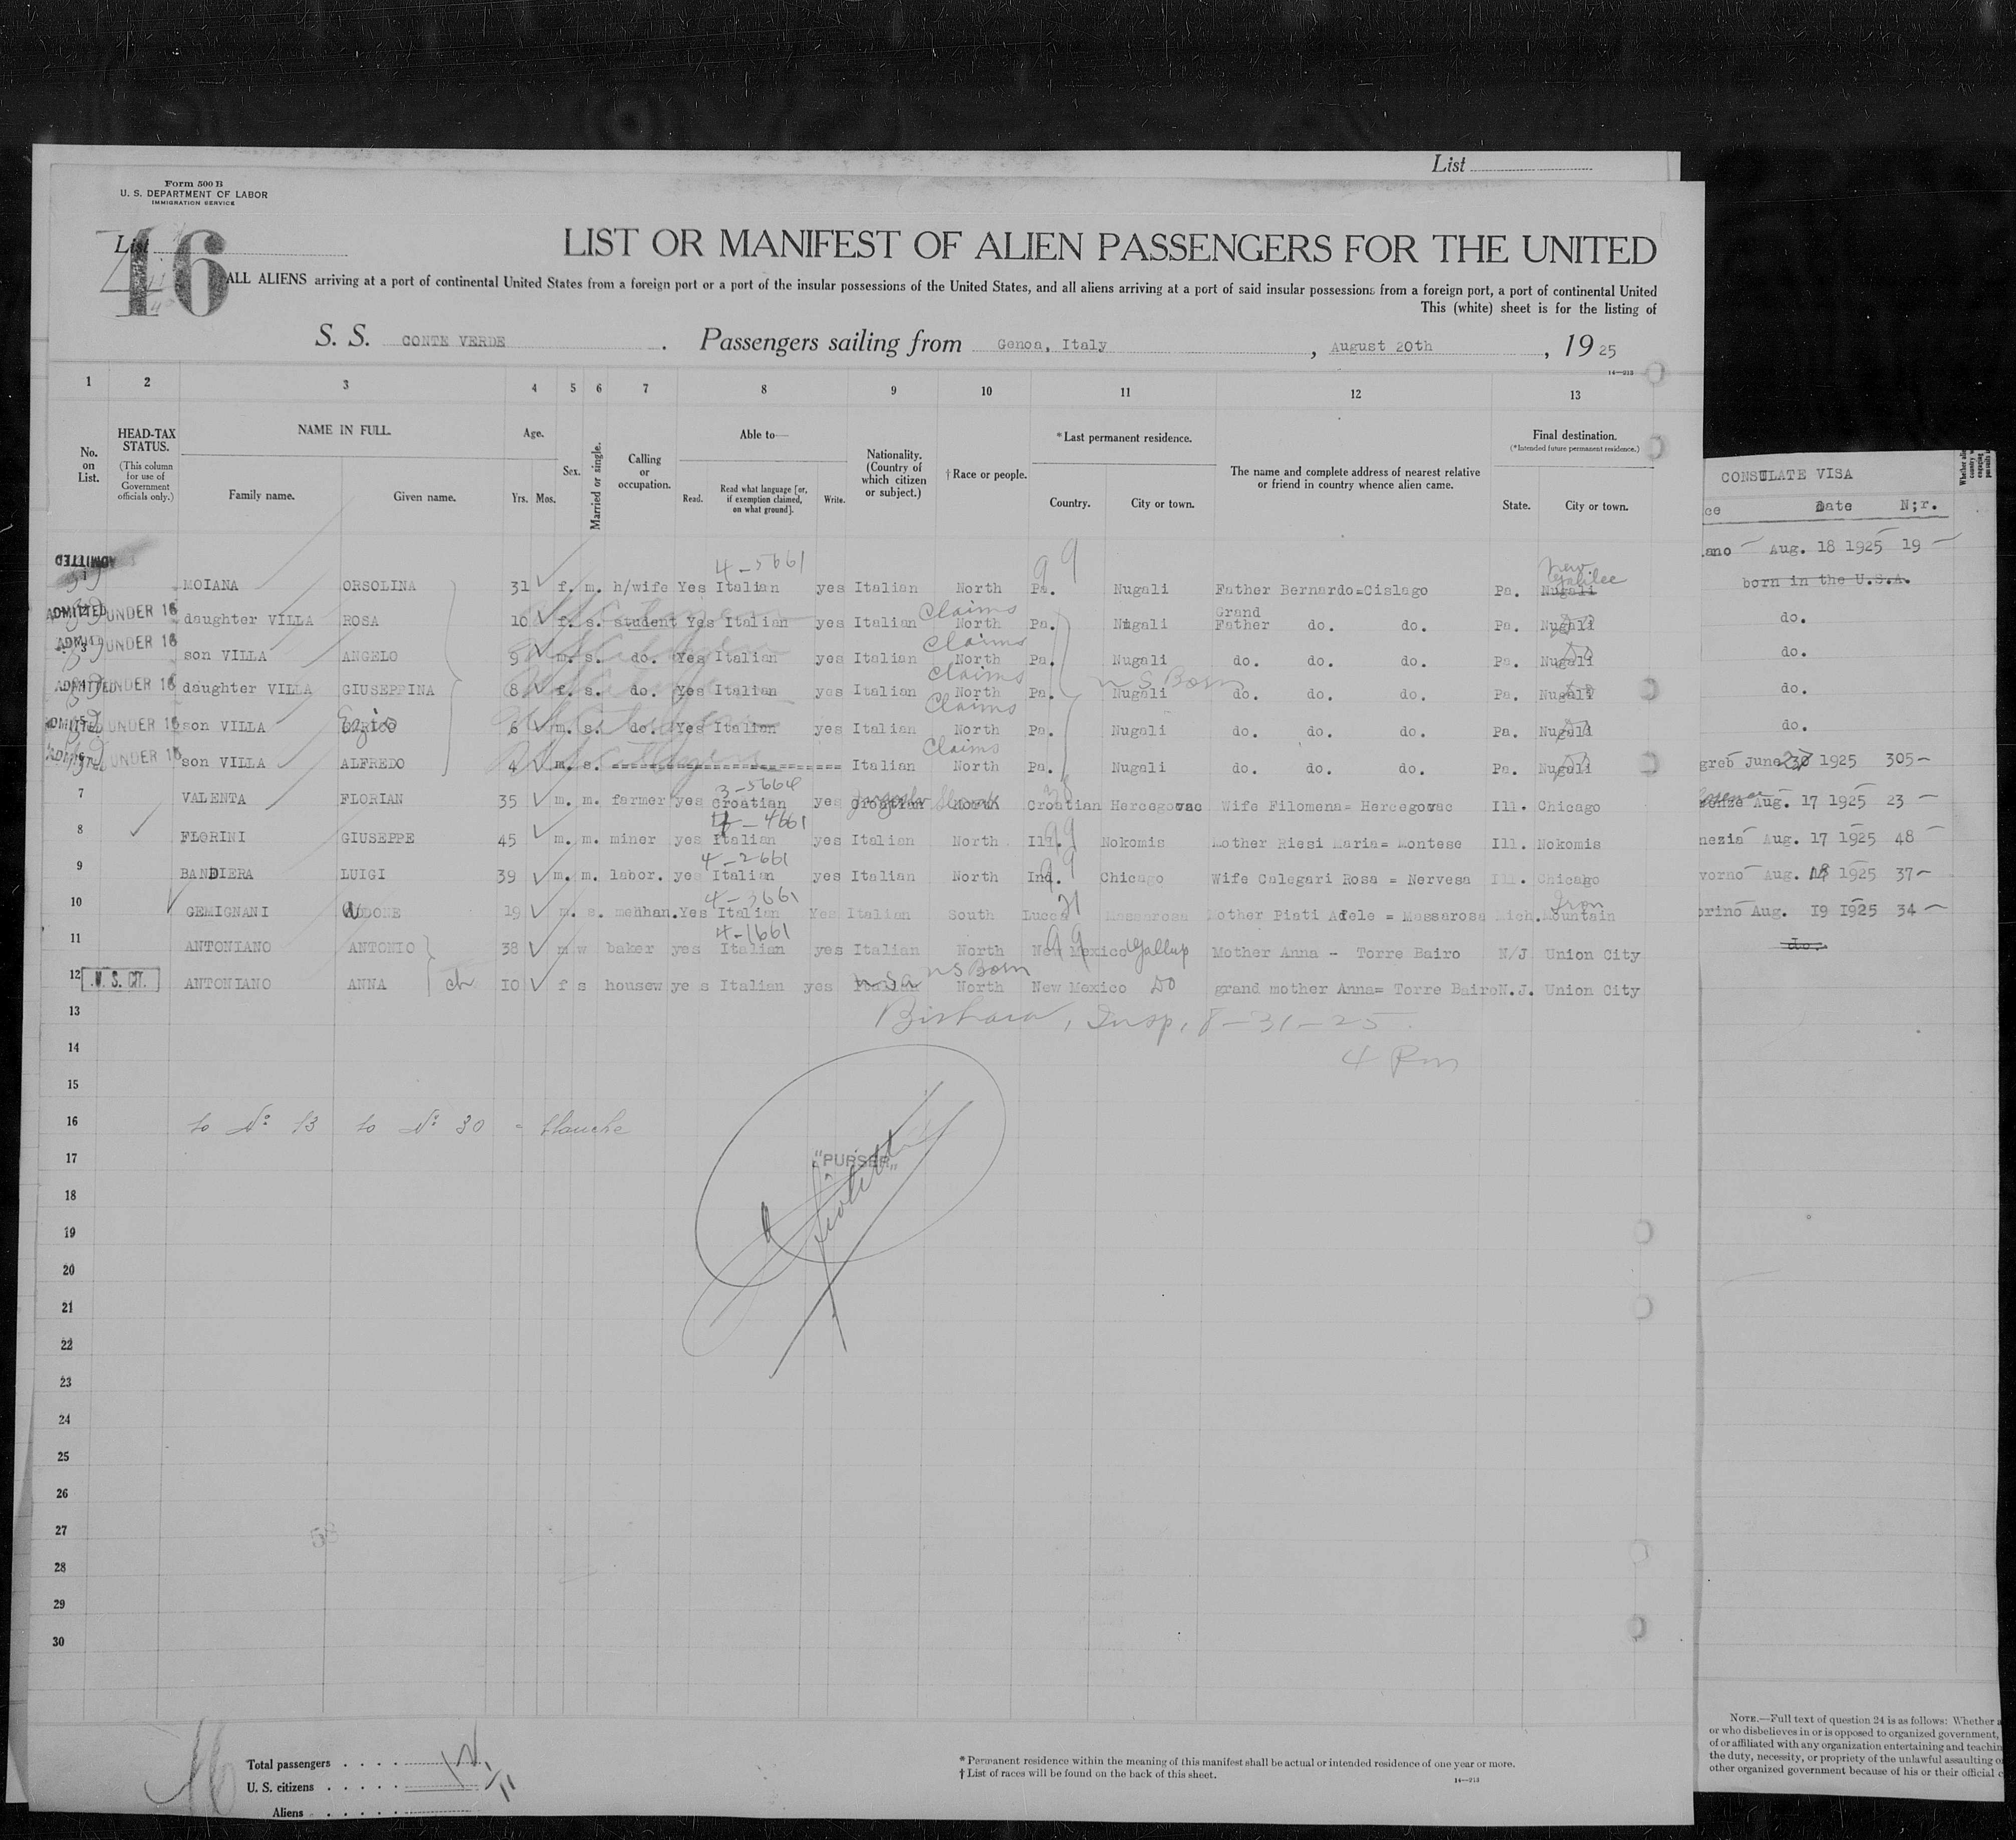 List
Form 500 B
U. S. DEPARTMENT OF LABOR
IMMIGRATION SERVICE
List
46
LIST OR MANIFEST OF ALIEN PASSENGERS FOR THE UNITED
ALL ALIENS arriving at a port of continental United States from a foreign port or a port of the insular possessions of the United States, and all aliens arriving at a port of said insular possessions from a foreign port, a port of continental United
This (white) sheet is for the listing of
S. S. CONTE VERDE. Passengers sailing from Genoa, Italy, August 20th, 1925
14—213
1 2 3 4 5 6 7 8 9 10 11 12 13
No. on List.
HEAD-TAX STATUS.
(This column for use of Government officials only.)
NAME IN FULL.
Family name. Given name.
Age.
Yrs. Mos.
Sex.
Married or single.
Calling or occupation.
Able to—
Read. Read what language [or, if exemption claimed, on what ground]. Write.
Nationality. (Country of which citizen or subject.)
†Race or people.
*Last permanent residence.
Country. City or town.
The name and complete address of nearest relative or friend in country whence alien came.
Final destination.
(*Intended future permanent residence.)
State. City or town.
CONSULATE VISA
Date N;r.
4-5661 99 New Galilee
ADMITTED 1 MOIANA ORSOLINA 31 f. m. h/wife Yes Italian yes Italian North Pa. Nugali Father Bernardo=Cislago Pa. Nugali
Aug. 18 1925 19
born in the U.S.A.
ADMITTED UNDER 16 daughter VILLA ROSA 10 f. s. student Yes Italian yes Italian Claims North Pa. Nugali Grand Father do. do. Pa. Nugali
do.
ADMITTED 3 UNDER 16 son VILLA ANGELO 9 m. s. do. Yes Italian yes Italian Claims North Pa. Nugali do. do. do. Pa. Nugali
do.
ADMITTED UNDER 16 daughter VILLA GIUSEPPINA 8 f. s. do. Yes Italian yes Italian Claims North Pa. Nugali U S Born do. do. do. Pa. Nugali
do.
ADMITTED UNDER 16 son VILLA 6 m. s. do. Yes Italian yes Italian Claims North Pa. Nugali do. do. do. Pa. Nugali
do.
ADMITTED UNDER 16 son VILLA ALFREDO 4 m. s. Italian Claims North Pa. Nugali do. do. do. Pa. Nugali
June 1925 305
3-5664
7 VALENTA FLORIAN 35 m. m. farmer yes Croatian yes Croatian North Croatian Hercegovac Wife Filomena= Hercegovac Ill. Chicago
Aug. 17 1925 23
4-4661 99
8 FLORINI GIUSEPPE 45 m. m. miner yes Italian yes Italian North Ill. Nokomis Mother Riesi Maria= Montese Ill. Nokomis
Aug. 17 1925 48
4-2661 99
9 BANDIERA LUIGI 39 m. m. labor. yes Italian yes Italian North Ind. Chicago Wife Calegari Rosa = Nervesa Ill. Chicago
Aug. 18 1925 37
4-3661 21 Iron
10 GEMIGNANI 19 m. s. menhan. Yes Italian Yes Italian South Lucca Massarosa Mother Piati Adele = Massarosa Mich. Mountain
Aug. 19 1925 34
4-1661 99
11 ANTONIANO ANTONIO 38 m w baker yes Italian yes Italian North New Mexico Gallup Mother Anna - Torre Bairo N/J Union City
do.
12 U. S. CIT. ANTONIANO ANNA ch 10 f s housew ye s Italian yes U S Born North New Mexico Do grand mother Anna= Torre Bairo N.J. Union City
13
Insp, 8-31-25
14
4 Pm
15
16 to No 13 to No 30 - blanche
17 "PURSER"
18
19
20
21
22
23
24
25
26
27
58
28
29
30
46
Total passengers . . . .
U. S. citizens . . . . .
Aliens . . . . .
* Permanent residence within the meaning of this manifest shall be actual or intended residence of one year or more.
† List of races will be found on the back of this sheet.
14—213
NOTE.—Full text of question 24 is as follows: Whether a
or who disbelieves in or is opposed to organized government,
of or affiliated with any organization entertaining and teachin
the duty, necessity, or propriety of the unlawful assaulting o
other organized government because of his or their official c